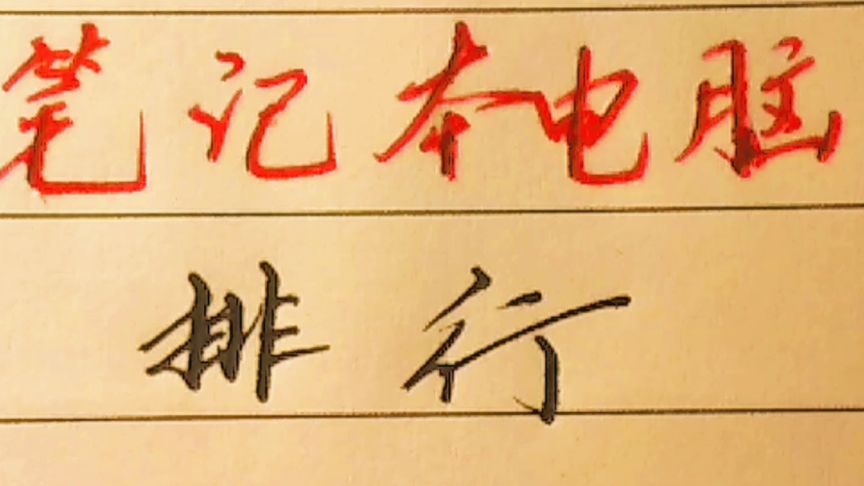 笔记本电脑
排行